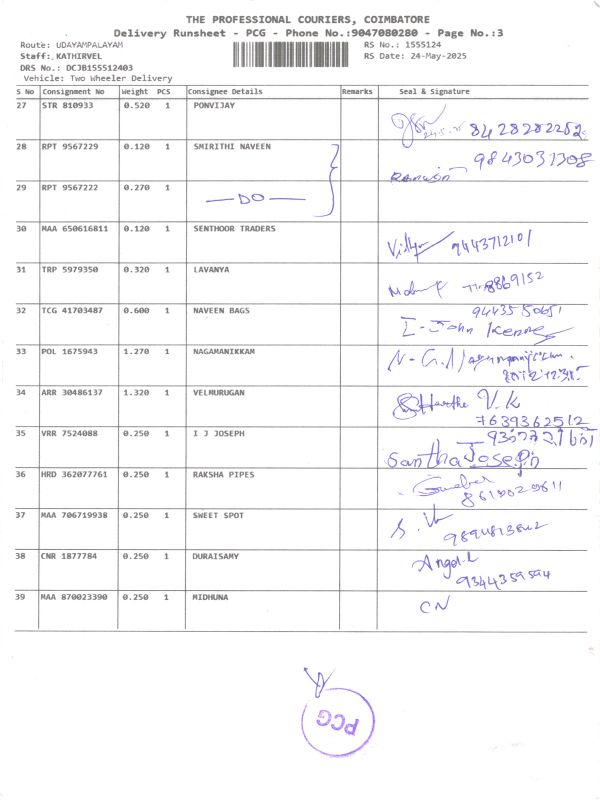 THE PROFESSIONAL COURIERS, COIMBATORE
Delivery Runsheet - PCG - Phone No.:9047080280 - Page No.:3
Route: UDAYAMPALAYAM RS No.: 1555124
Staff: KATHIRVEL RS Date: 24-May-2025
DRS No.: DCJB155512403
Vehicle: Two Wheeler Delivery
S No Consignment No Weight PCS Consignee Details Remarks Seal & Signature
27 STR 810933 0.520 1 PONVIJAY
8428282252
28 RPT 9567229 0.120 1 SMIRITHI NAVEEN 9843031308
29 RPT 9567222 0.270 1
— DO —
30 MAA 650616811 0.120 1 SENTHOOR TRADERS
9443712101
31 TRP 5979350 0.320 1 LAVANYA
32 TCG 41703487 0.600 1 NAVEEN BAGS
I - John
33 POL 1675943 1.270 1 NAGAMANIKKAM
34 ARR 30486137 1.320 1 VELMURUGAN
V.K
7639362512
35 VRR 7524088 0.250 1 I J JOSEPH
Santha Joseph
36 HRD 362077761 0.250 1 RAKSHA PIPES
37 MAA 706719938 0.250 1 SWEET SPOT
38 CNR 1877784 0.250 1 DURAISAMY
9344359594
39 MAA 870023390 0.250 1 MIDHUNA
CN
PCG